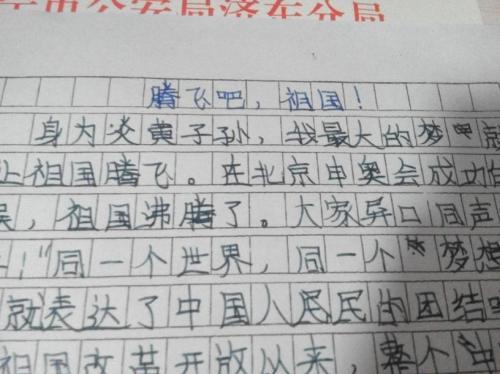 市公安局济东分局
腾飞吧，祖国！
身为炎黄子孙，我最大的梦
上祖国腾飞。在北京申奥会成功
，祖国沸腾了。大家异口同声
！"同一个世界，同一个梦想
就表达了中国人民民的团结
祖国改革开放以来，整个